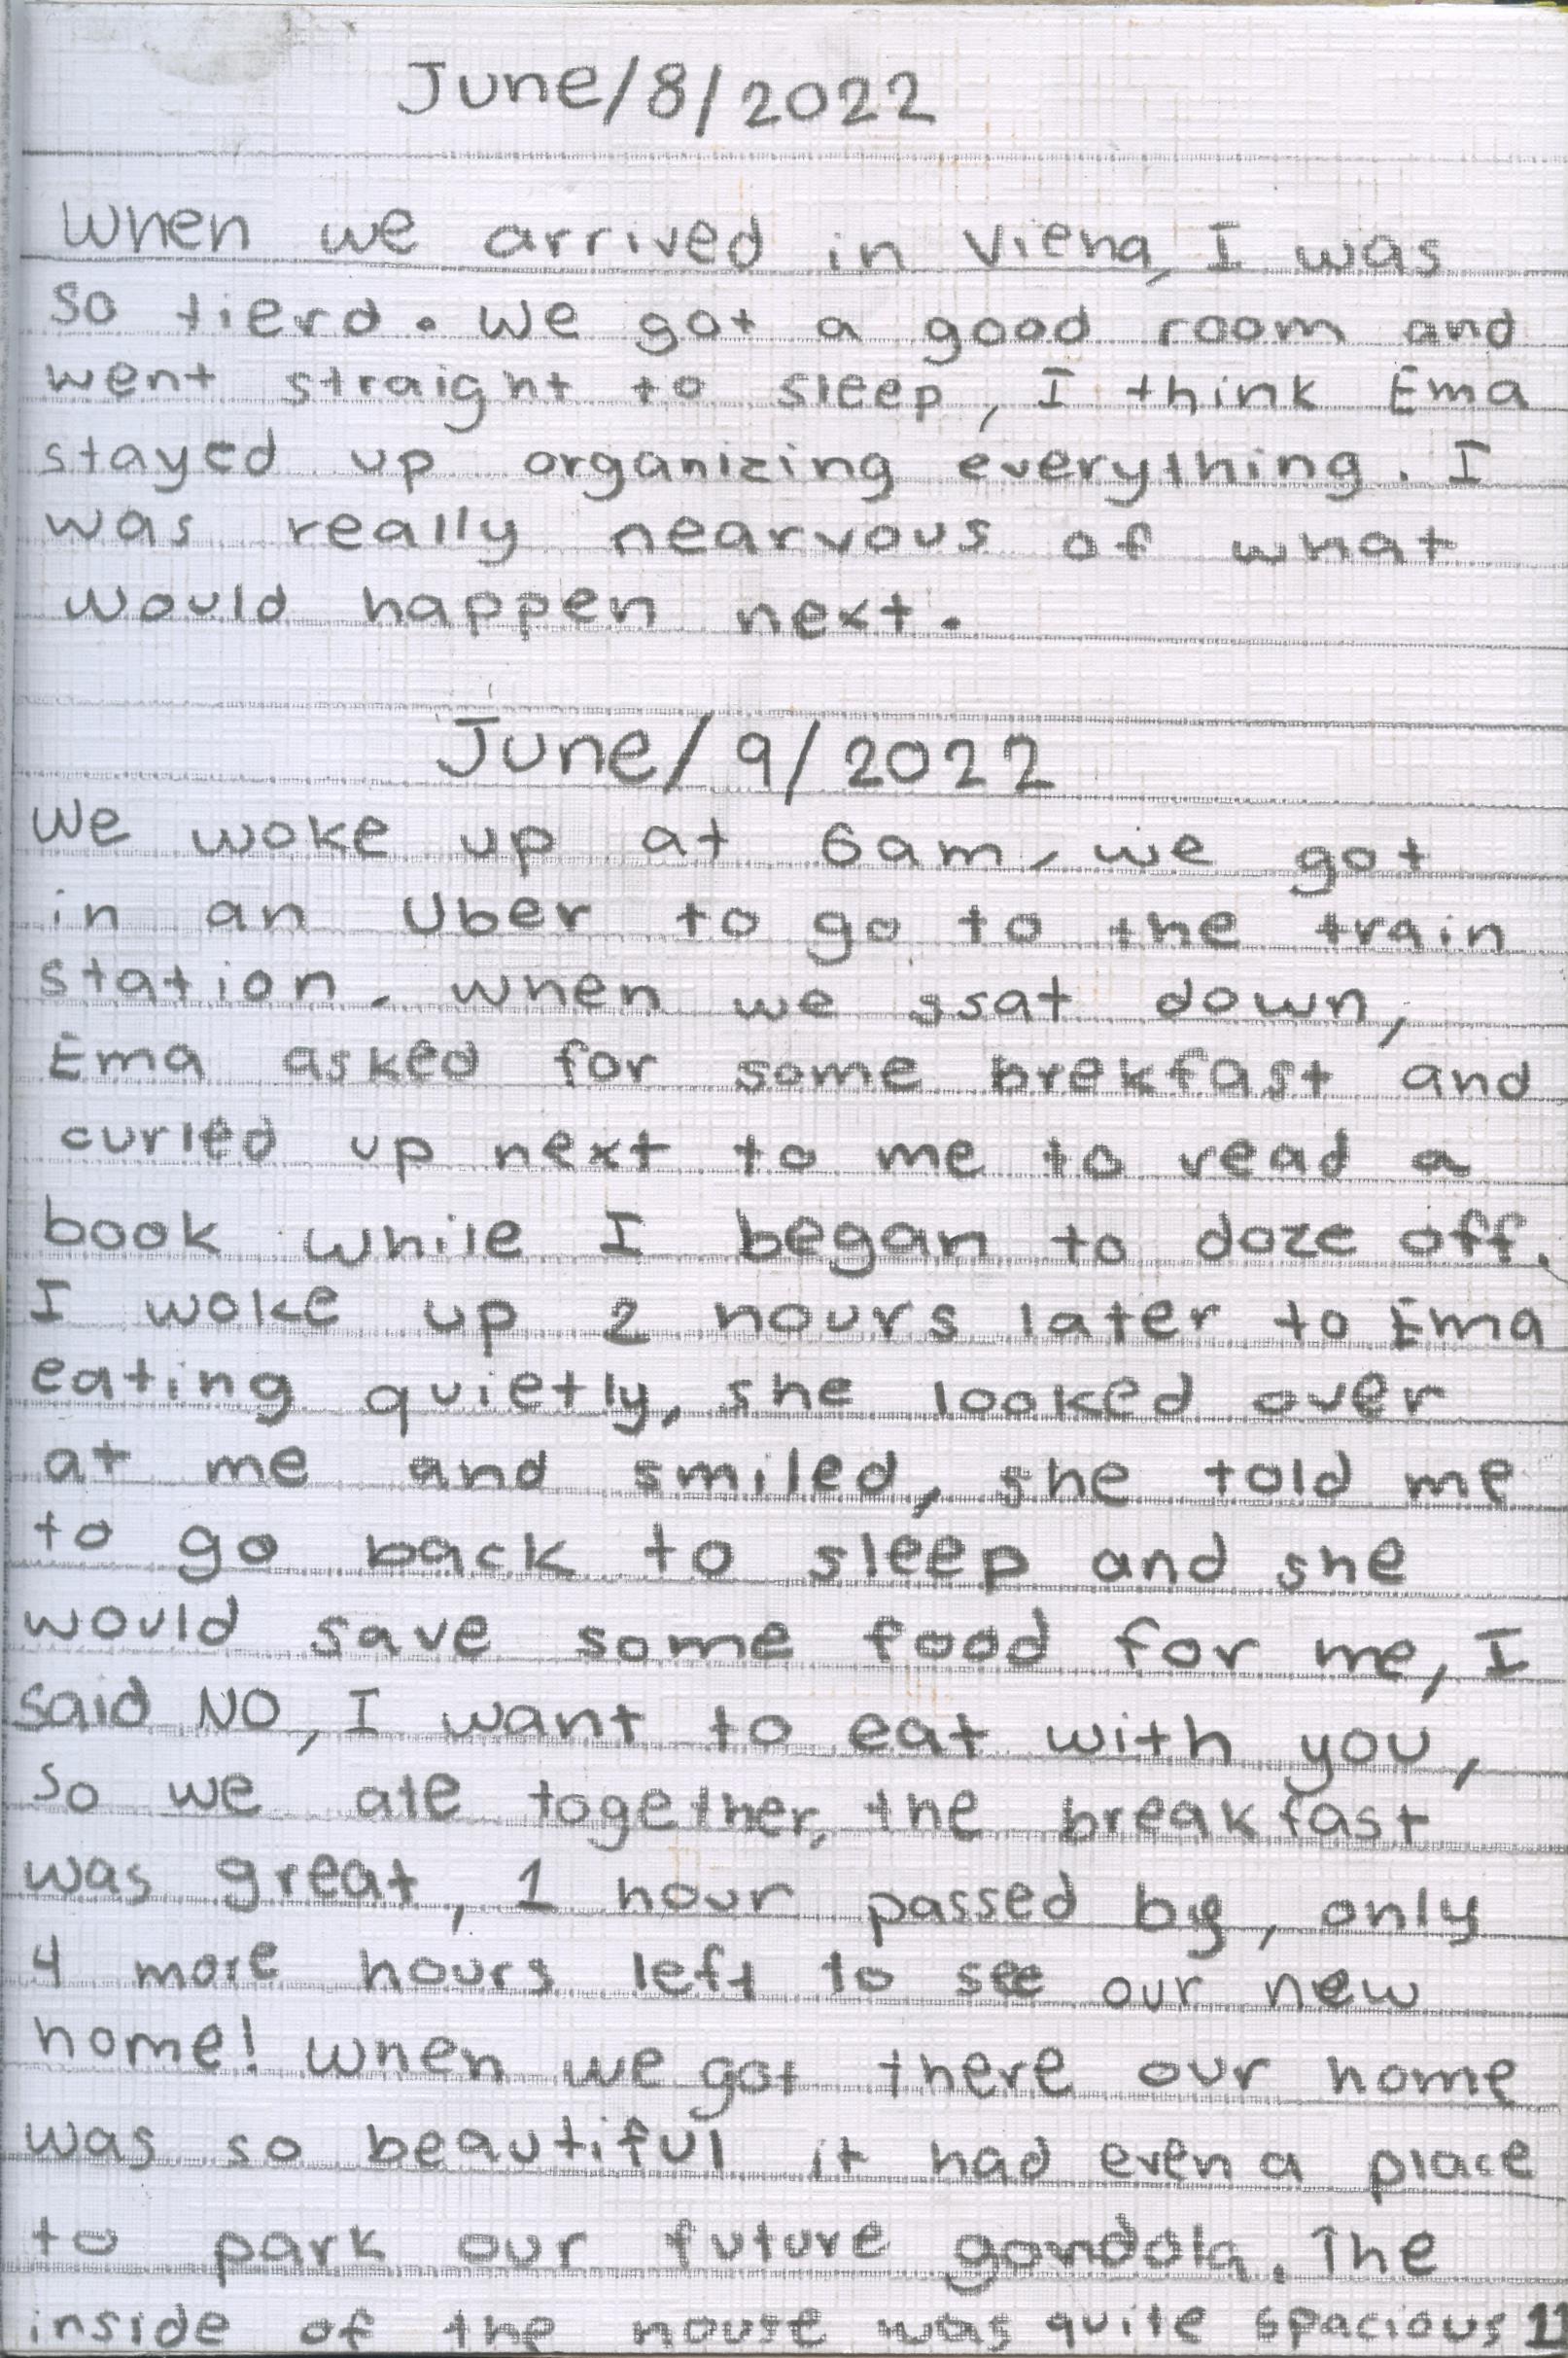 June/8/2022
When we arrived in Viena, I was
so tierd. We got a good room and
went straight to sleep, I think Ema
stayed up organizing everything. I
was really nearvous of what
would happen next.
June/9/2022
We woke up at 6am, we got
in an Uber to go to the train
station. When we ssat down,
Ema asked for some brekfast and
curled up next to me to read a
book while I began to doze off.
I woke up 2 hours later to Ema
eating quietly, she looked over
at me and smiled, she told me
to go back to sleep and she
would save some food for me, I
said NO, I want to eat with you,
so we ate together, the breakfast
was great, 1 hour passed by, only
4 more hours left to see our new
home! When we got there our home
was so beautiful it had even a place
to park our future gondola. The
inside of the house was quite spacious 11